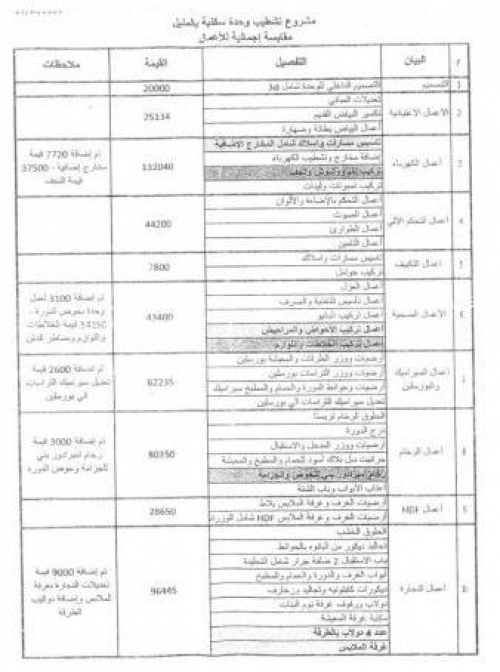 مشروع تشطيب وحدة سكنية بالمنيل
مقايسة إجمالية للأعمال
م البيان التفصيل القيمة ملاحظات
1 التصميم التصميم الداخلي للوحدة شامل 3d 20000
2 الأعمال الاعتيادية 25134
تعديلات المباني
تكسير البياض القديم
أعمال البياض بطانة وضهارة
3 أعمال الكهرباء 132040
تأسيس مسارات واسلاك شامل المخارج الإضافية
إضافة مخارج وتشطيب الكهرباء
تركيب ونجف
تركيب اسبوتات وليدات
تم إضافة 7720 قيمة
مخارج إضافية - 37500
قيمة النجف
4 أعمال التحكم الآلي 44200
أعمال التحكم بالإضاءة والألوان
أعمال الصوت
أعمال الطوارئ
أعمال التامين
أعمال التكييف 7800
تاسيس مسارات واسلاك
تركيب حوامل
6 الاعمال الصحية 43400
أعمال العزل
أعمال تأسيس التغذية والصرف
أعمال تركيب البانيو
أعمال تركيب الاحواض والمراحيض
أعمال تركيب الخلاطات واللوازم
تم إضافة 3100 لعمل
وحدة بحوض الدورة -
قيمة الخلاطات
واللوازم
أعمال السيراميك
والبورسلين
62235
أرضيات ووزر الطرقات والمعيشة بورسلين
أرضيات ووزر التراسات بورسلين
أرضيات وحوائط الدورة والحمام والمطبخ سيراميك
تعديل سيراميك التراسات الي بورسلين
تم إضافة 2600 قيمة
تعديل سيراميك التراسات
الي بورسلين
أعمال الرخام 80350
الحلوق الرخام تريستا
درج الدورة
أرضيات ووزر المدخل والاستقبال
جرانيت دبل بلاك أسود للحمام والمطبخ والمعيشة
رخام امبرادور بني للحوض والجرامة
أعتاب الأبواب وباب الشقة
تم إضافة 3000 قيمة
رخام امبرادور بني
للجرامة وحوض الدورة
أعمال HDF 28650
أرضيات الغرف وغرفة الملابس بلاط
أرضيات الغرف وغرفة الملابس HDF شامل الوزرات
أعمال النجارة 96445
الحلوق الخشب
تجاليد ديكور من البانوه بالحوائط
باب الاستقبال 2 ضلفة جرار شامل التجليدة
أبواب الغرف والدورة والحمام والمطبخ
ديكورات كابلونيه وتجاليد وزخارف
دولاب ورفوف غرفة نوم البنات
مكتبة غرفة المعيشة
عدد 4 دولاب بالطرقة
غرفة الملابس
تم إضافة 9000 قيمة
تعديلات النجارة بغرفة
الملابس وإضافة دواليب
الطرقة